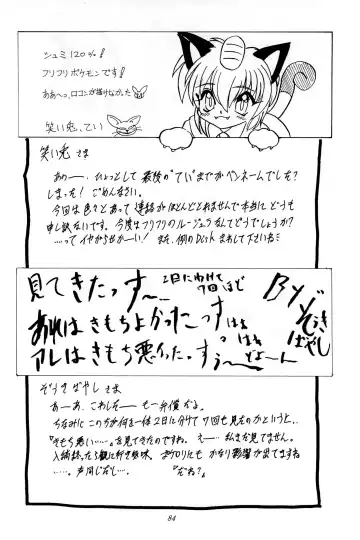 シュミ120%!
フリフリポケモンです!
ああ〜っ、ロコンが描けなかった
笑い兎、てい
笑い兎 さま
あのー…、ひょっとして最後の「てい」までがペンネームでした?
しまった! ごめんなさい。
今回は色々とあって連絡がほとんどとれませんで本当に どうも
申し訳ないです。今度はフリフリのルージュラなんてどうでしょうか?
…ってイヤがらせかーい! また、例の
見てきたっす〜
2日にわけて
7回ほど
By ぞうきばやし
あれはきもちよかったっすはぁはぁ
アレはきもち悪かったっすぅ〜
ぞうきばやし さま
あーあ、これしぞー も一弁償だよ。
ちなみにこのちが何を一体2日に分けて7回も見たのかというと…
『きもち悪い…』を見てきたのですね。え…私まだ見てません。
入稿終ったら観に行き
かなり影響が出てますね
……。声同じだし…。 『だね?』
84